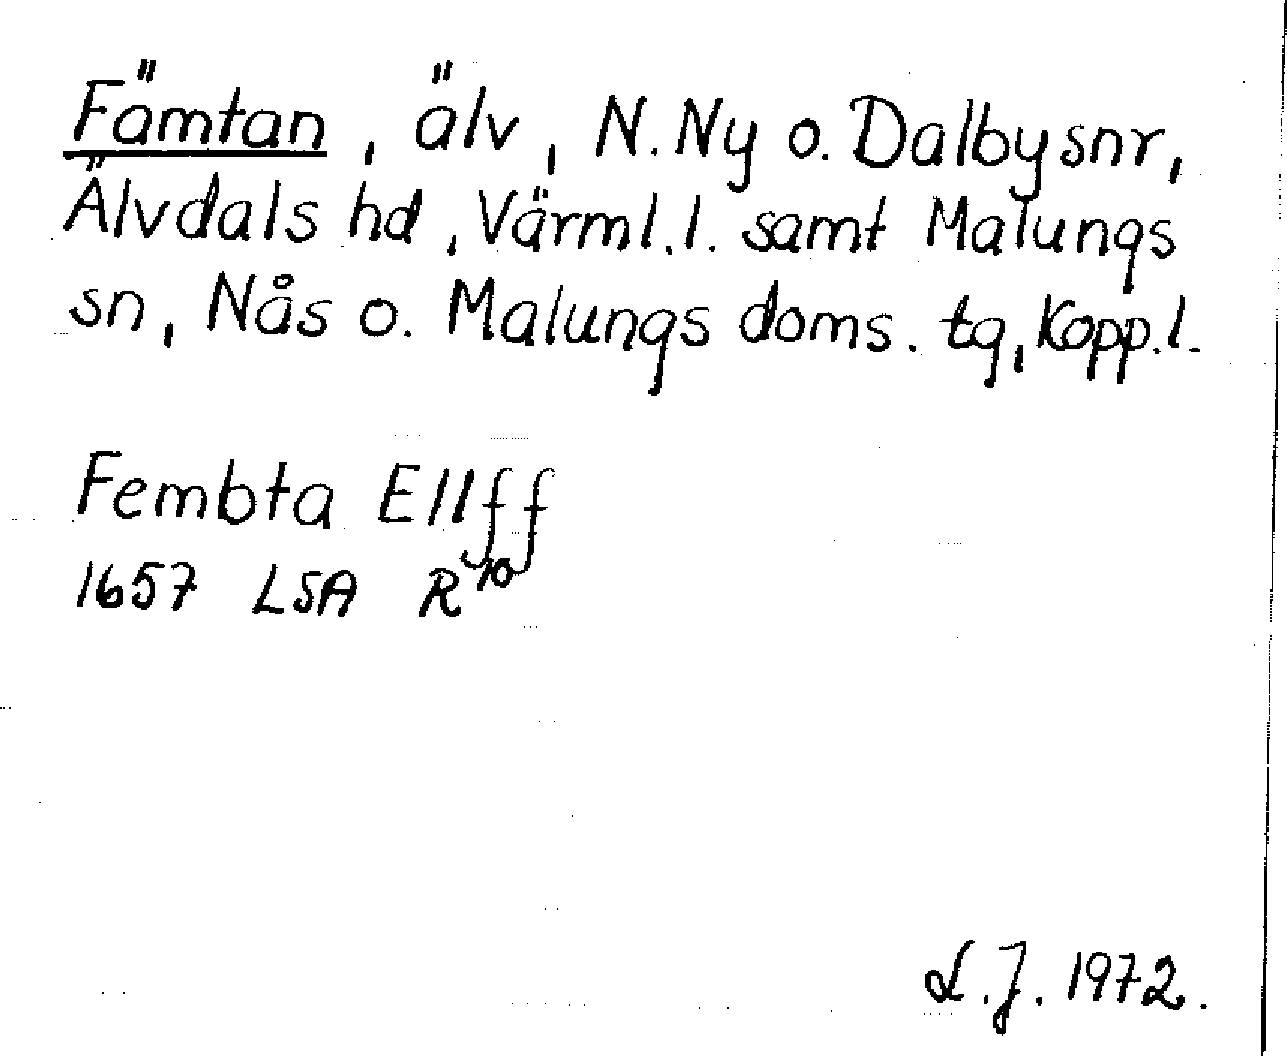 Fämtan, älv, N. Ny o. Dalby snr,
Älvdals hd, Värml. l. samt Malungs
sn, Nås o. Malungs doms. tg, Kopp. l.
Fembta Ellff
1657 LSA R 10
L.J. 1972.